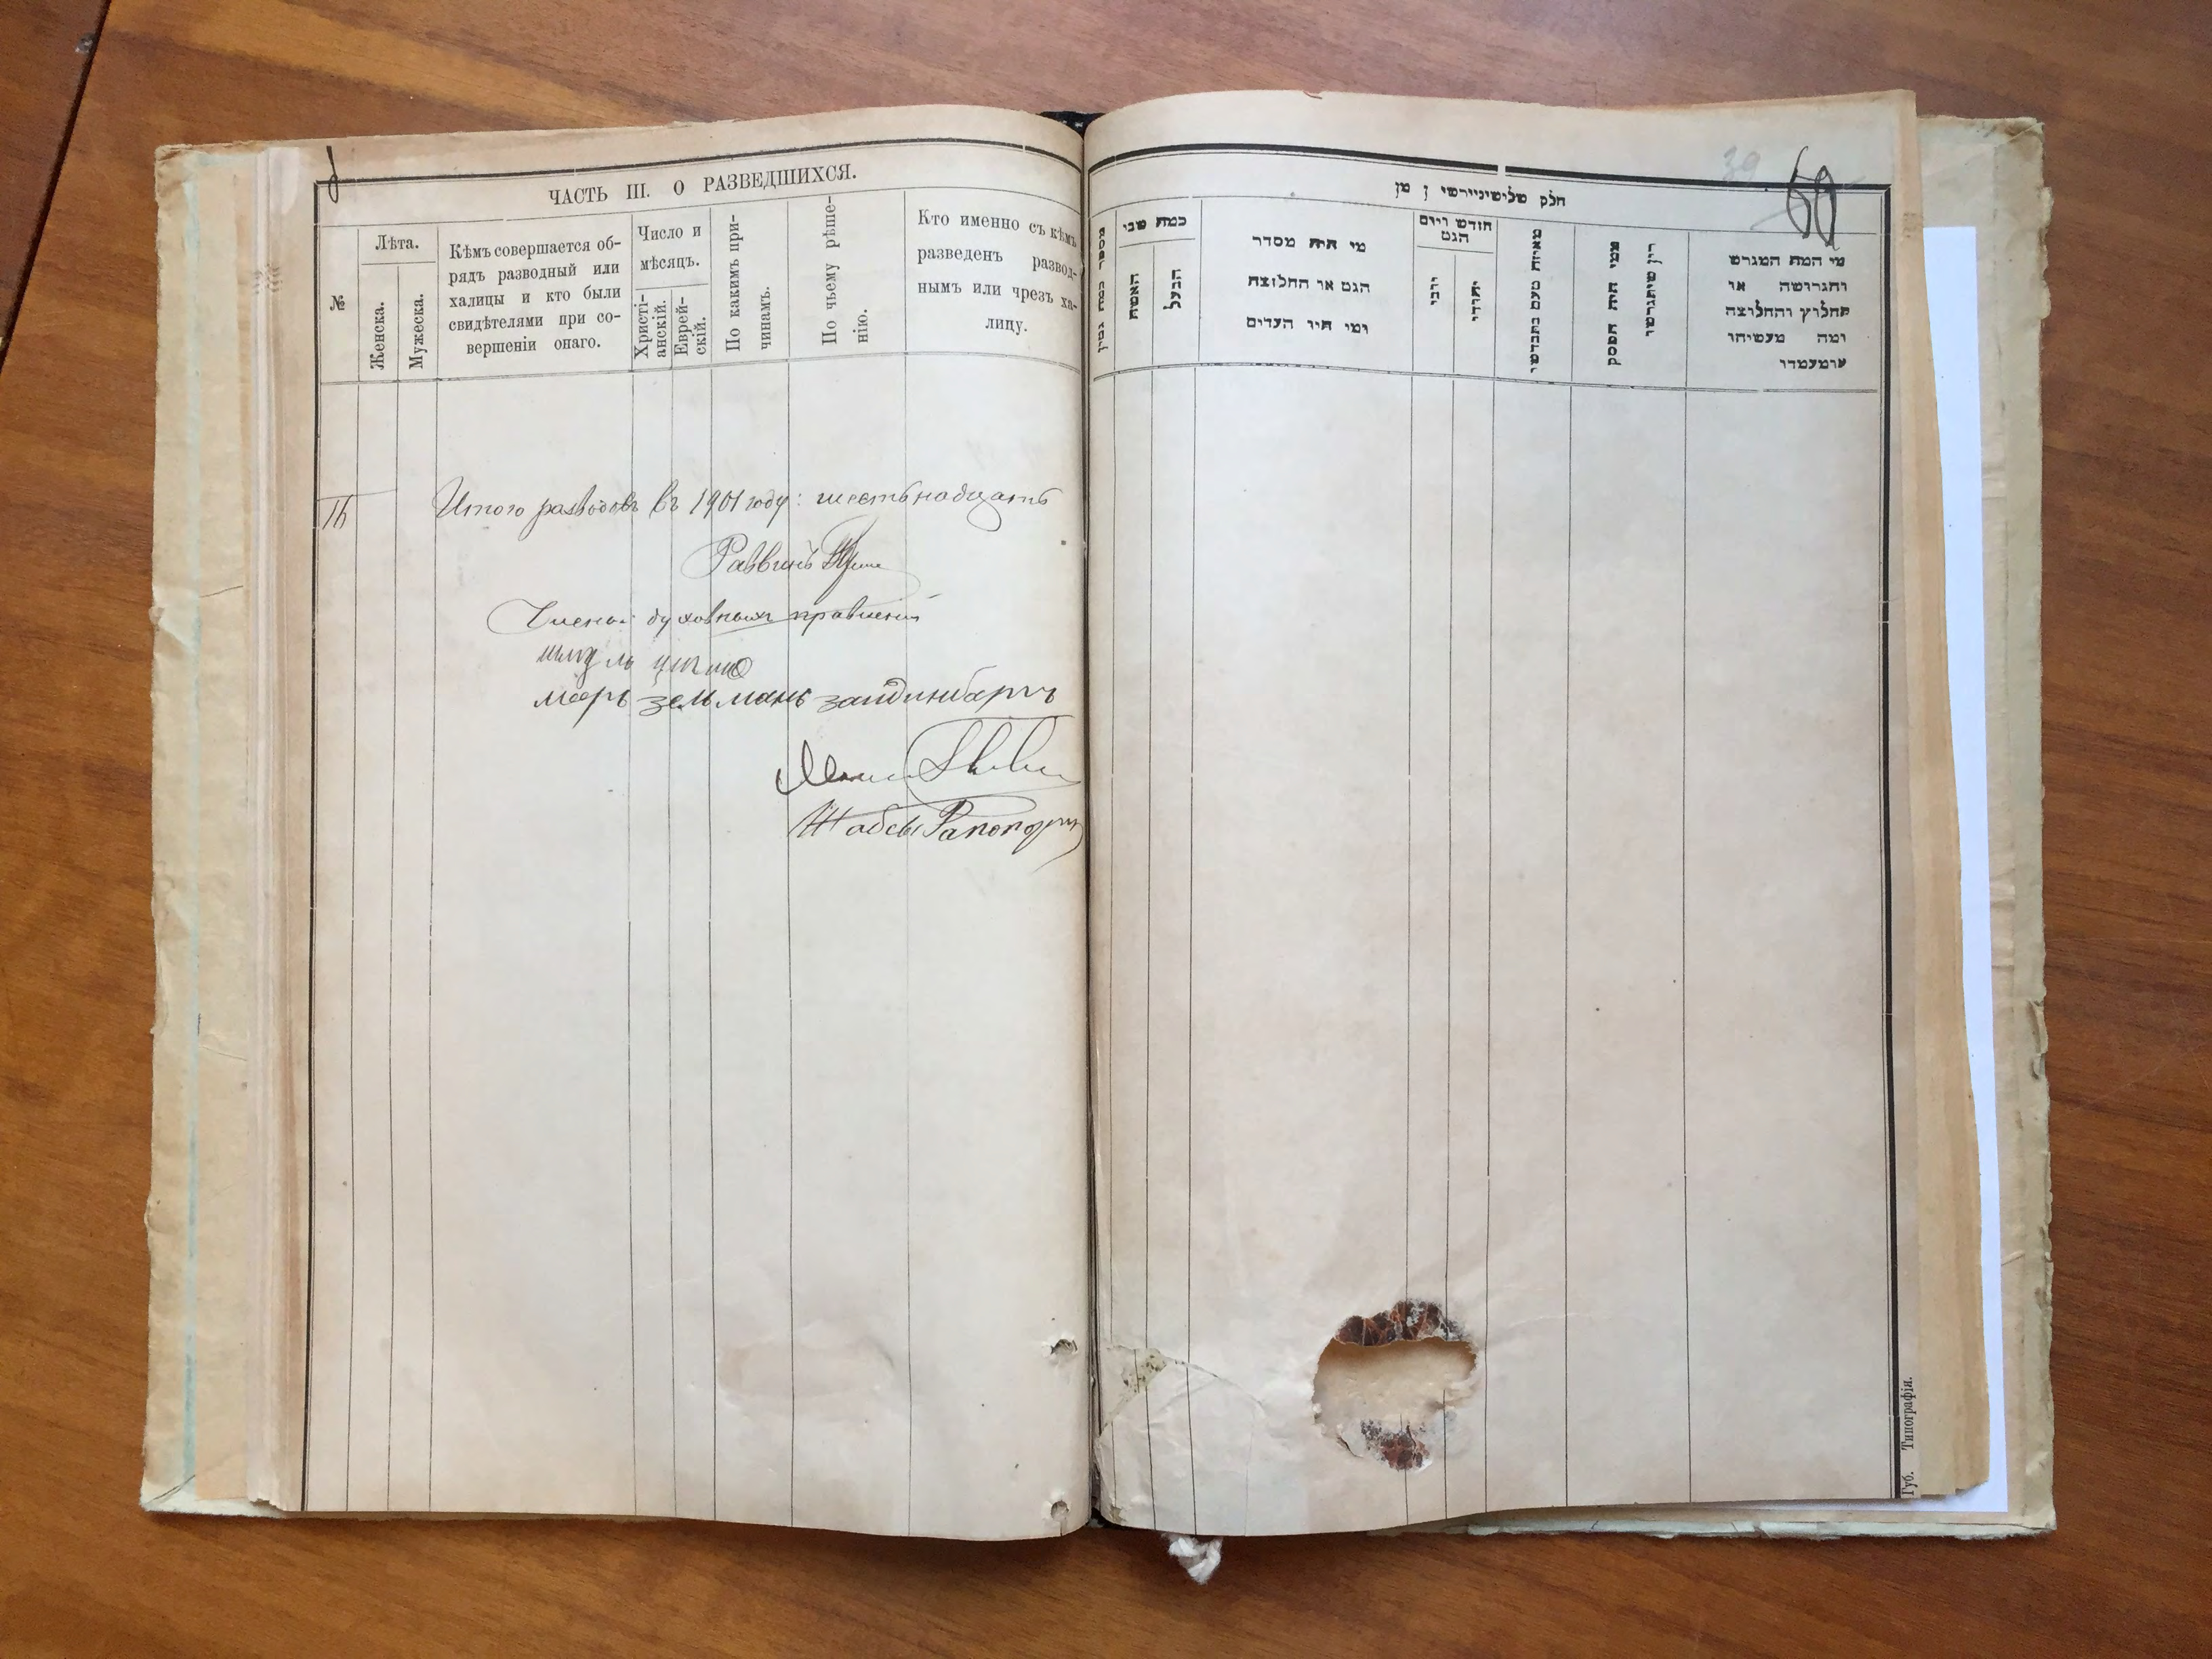 ЧАСТЬ III. О РАЗВЕДШИХСЯ.
№
Лѣта.
Женска.
Мужеска.
Кѣмъ совершается об-
рядъ разводный или
халицы и кто были
свидѣтелями при со-
вершеніи онаго.
Число и
мѣсяцъ.
Христі-
анскій.
Еврей-
скій.
По какимъ при-
чинамъ.
По чьему рѣше-
нію.
Кто именно съ кѣмъ
разведенъ развод-
нымъ или чрезъ ха-
лицу.
16
Итого разводовъ въ 1901 году: шестьнадцать
Раввинъ
Члены духовныхъ правленій
меерь зельмань зайдинбаргъ
Шабсы Рапопортъ
39
60
חלק שלישי
מספר כמה גטין
כמה שני
האשה
הבעל
מי היה מסדר
הגט או החלוצה
ומי היו העדים
חודש ויום
הגט
יוני
יהודי
מאיזה טעם נתגרשו
ממי היה הפסק
דין שיתגרשו
מי המה המגרש
והגרושה או
החלוץ והחלוצה
ומה מעשיהו
ומעמדו
Губ. Типографія.